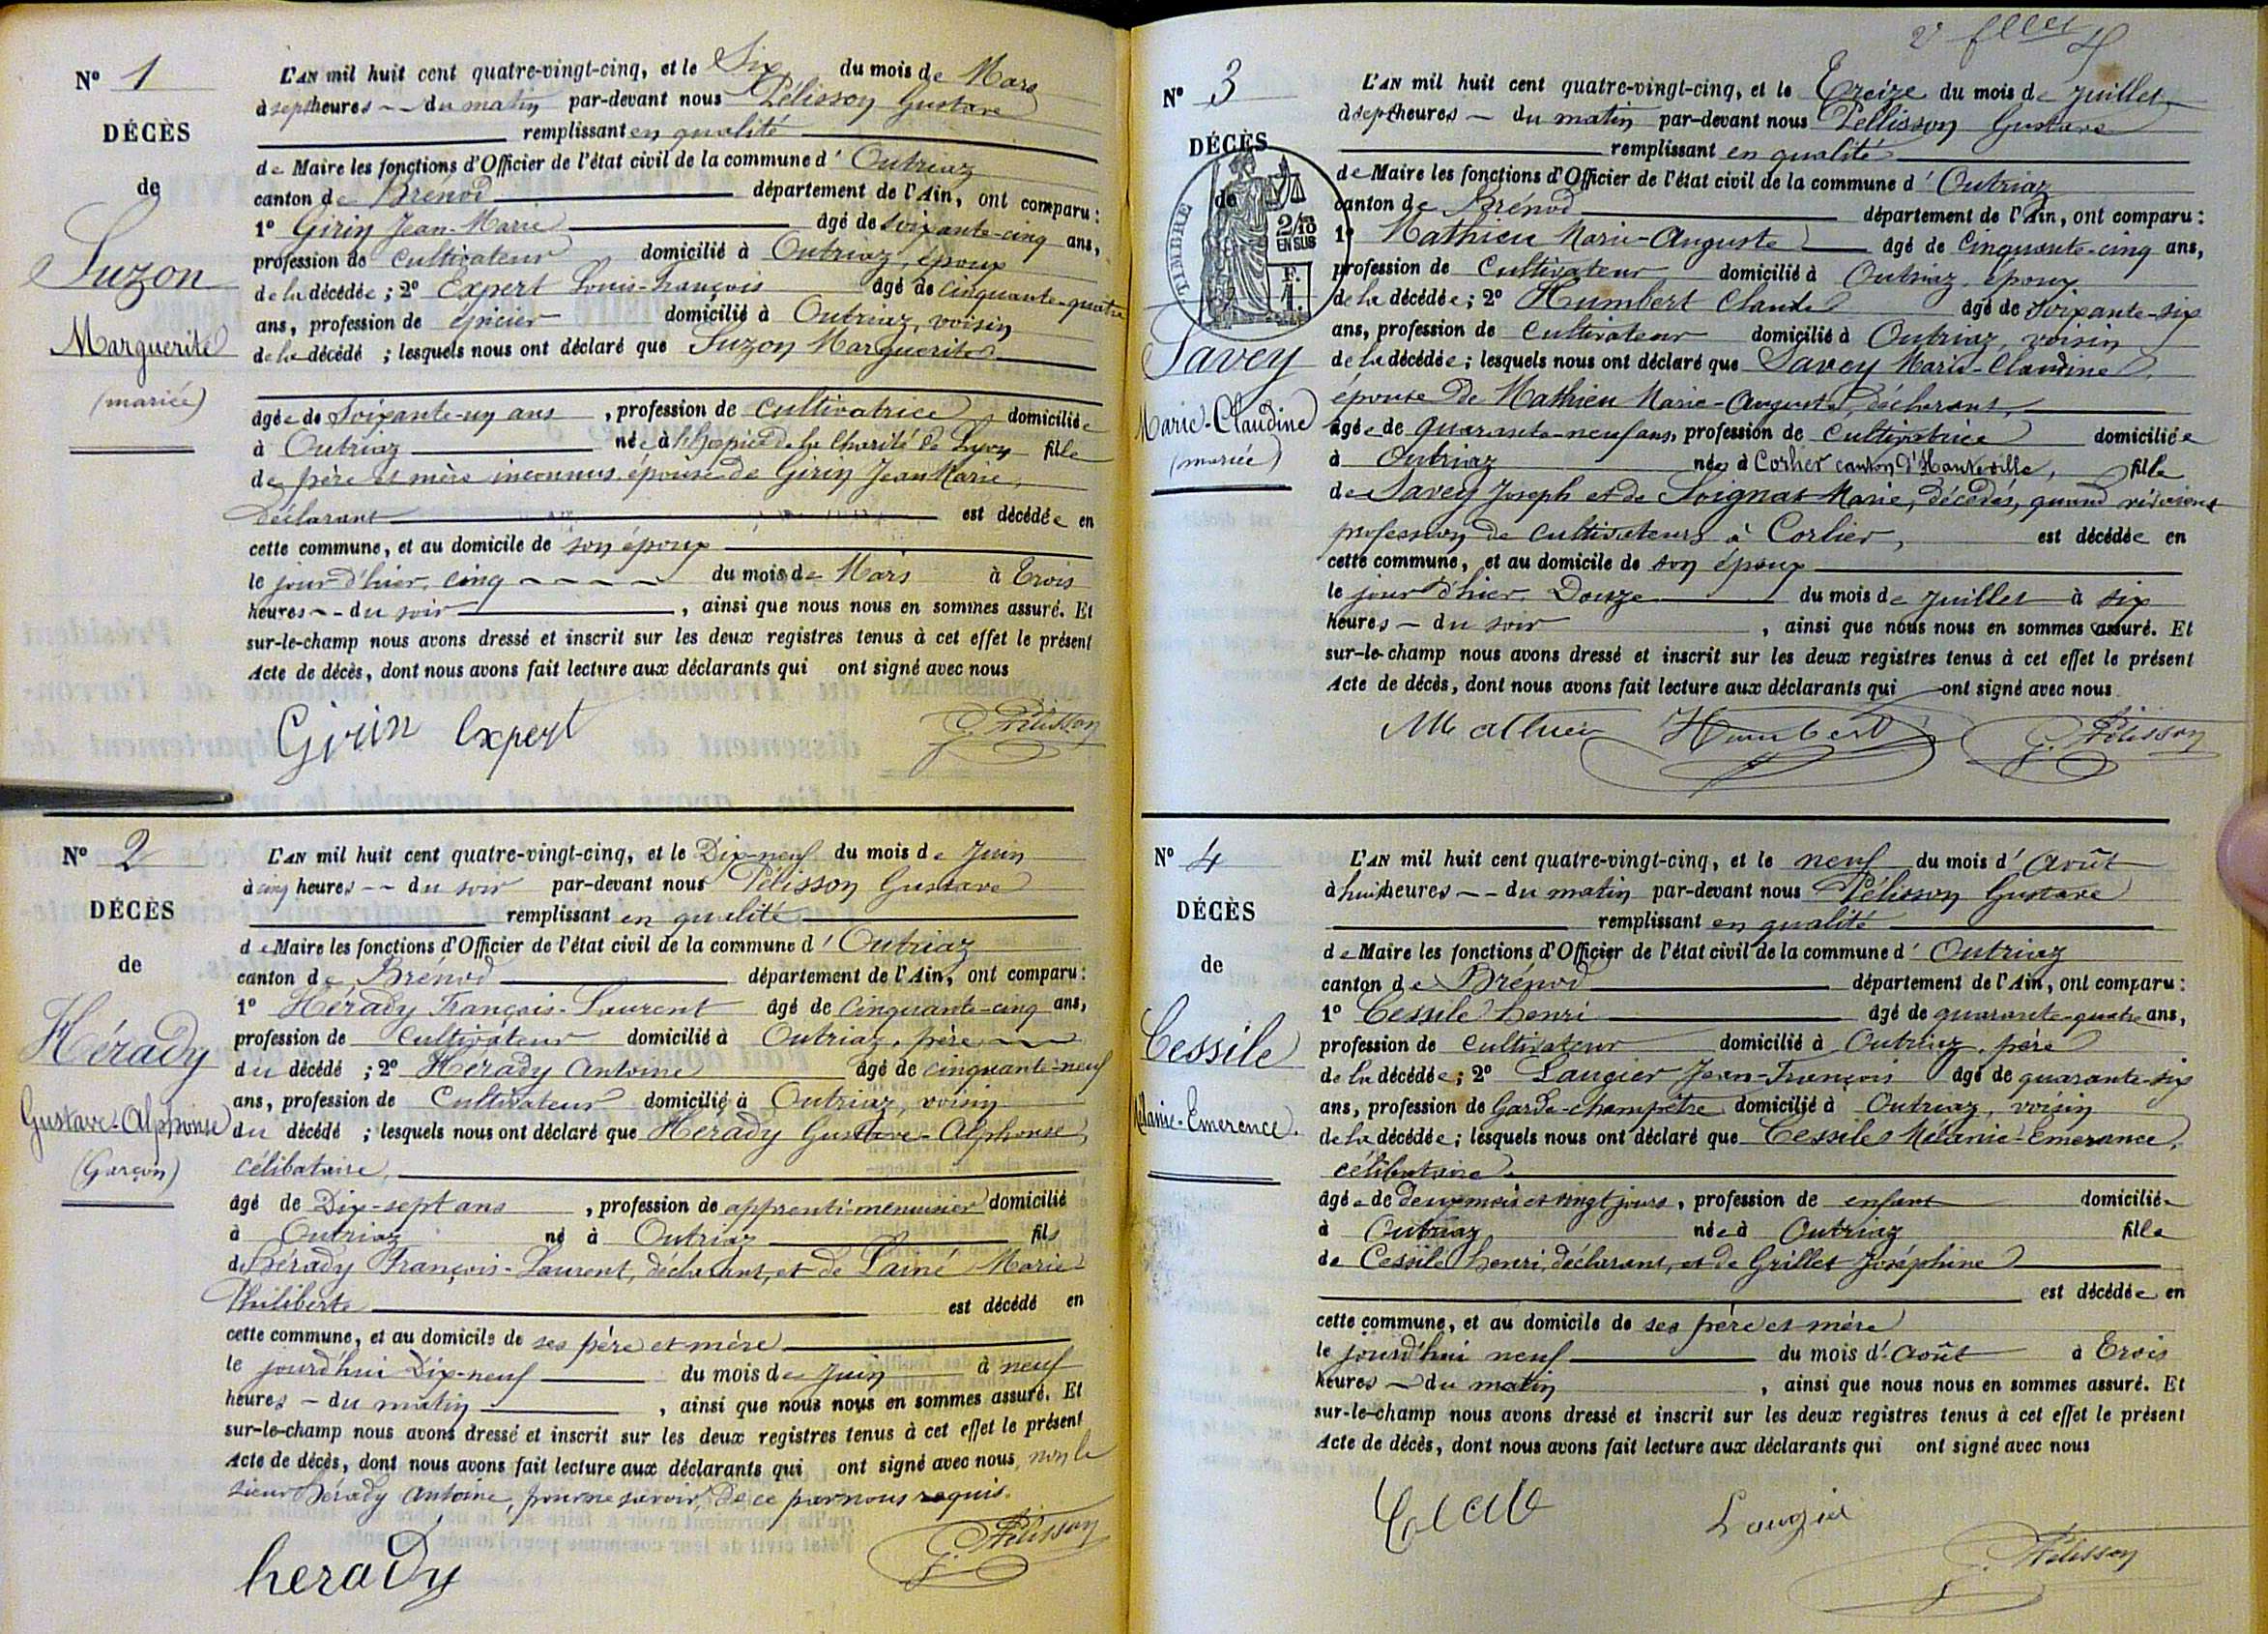 N° 1
DÉCÈS
de
Suzon
Marguerite
(mariée)
L'AN mil huit cent quatre-vingt-cinq, et le Six du mois de Mars
à sept heures -- du matin par-devant nous Pélisson Gustave
remplissant en qualité
de Maire les fonctions d'Officier de l'état civil de la commune d' Outriaz
canton de Brénod département de l'Ain, ont comparu :
1° Girin Jean-Marie âgé de soixante-cinq ans,
profession de cultivateur domicilié à Outriaz, époux
de la décédée ; 2° Expert Louis-François âgé de cinquante-quatre
ans, profession de épicier domicilié à Outriaz, voisin
de la décédé ; lesquels nous ont déclaré que Suzon Marguerite
âgée de Soixante-un ans , profession de cultivatrice domiciliée
à Outriaz née à l'hospice de la Charité de Lyon fille
de père et mère inconnus, épouse de Girin Jean Marie,
déclarant est décédée en
cette commune, et au domicile de son époux
le jour d'hier, cinq du mois de Mars à Trois
heures -- du soir , ainsi que nous nous en sommes assuré. Et
sur-le-champ nous avons dressé et inscrit sur les deux registres tenus à cet effet le présent
Acte de décès, dont nous avons fait lecture aux déclarants qui ont signé avec nous
Girin Expert G. Pélisson
N° 2
DÉCÈS
de
Hérady
Gustave-Alphonse
(Garçon)
L'AN mil huit cent quatre-vingt-cinq, et le Dix-neuf du mois de Juin
à cinq heures -- du soir par-devant nous Pélisson Gustave
remplissant en qualité
de Maire les fonctions d'Officier de l'état civil de la commune d' Outriaz
canton de Brénod département de l'Ain, ont comparu :
1° Hérady François-Laurent âgé de cinquante-cinq ans,
profession de cultivateur domicilié à Outriaz, père
du décédé ; 2° Hérady Antoine âgé de cinquante-neuf
ans, profession de Cultivateur domicilié à Outriaz, voisin
du décédé ; lesquels nous ont déclaré que Hérady Gustave-Alphonse,
célibataire,
âgé de Dix-sept ans , profession de apprenti-menuisier domicilié
à Outriaz né à Outriaz fils
de Hérady François-Laurent, déclarant, et de Lainé Marie
Philiberte est décédé en
cette commune, et au domicile de ses père et mère
le jourd'hui Dix-neuf du mois de Juin à neuf
heures - du matin , ainsi que nous nous en sommes assuré. Et
sur-le-champ nous avons dressé et inscrit sur les deux registres tenus à cet effet le présent
Acte de décès, dont nous avons fait lecture aux déclarants qui ont signé avec nous, non le
sieur Hérady Antoine, pour ne savoir, de ce par nous requis.
herady G. Pélisson
N° 3
DÉCÈS
de
TIMBRE
2/10
EN SUS
F.
1.
Savey
Marie-Claudine
(mariée)
L'AN mil huit cent quatre-vingt-cinq, et le Treize du mois de Juillet
à sept heures - du matin par-devant nous Pellisson Gustave
remplissant en qualité
de Maire les fonctions d'Officier de l'état civil de la commune d' Outriaz
canton de Brénod département de l'Ain, ont comparu :
1° Mathieu Marie-Auguste âgé de cinquante-cinq ans,
profession de Cultivateur domicilié à Outriaz, époux
de la décédée ; 2° Humbert Claude âgé de soixante-six
ans, profession de cultivateur domicilié à Outriaz, voisin
de la décédée ; lesquels nous ont déclaré que Savey Marie-Claudine,
épouse de Mathieu Marie-Auguste, déclarant,
âgée de quarante-neuf ans, profession de cultivatrice domiciliée
à Outriaz née à Corlier canton d'Hauteville, fille
de Savey Joseph et de Soignat Marie, décédés, quand vivaient
profession de cultivateurs à Corlier, est décédée en
cette commune, et au domicile de son époux
le jour d'hier, Douze du mois de Juillet à six
heures - du soir , ainsi que nous nous en sommes assuré. Et
sur-le-champ nous avons dressé et inscrit sur les deux registres tenus à cet effet le présent
Acte de décès, dont nous avons fait lecture aux déclarants qui ont signé avec nous
Mathieu Humbert G. Pélisson
N° 4
DÉCÈS
de
Cessile
Mélanie-Emerence.
L'AN mil huit cent quatre-vingt-cinq, et le neuf du mois d' Août
à huit heures -- du matin par-devant nous Pélisson Gustave
remplissant en qualité
de Maire les fonctions d'Officier de l'état civil de la commune d' Outriaz
canton de Brénod département de l'Ain, ont comparu :
1° Cessile henri âgé de quarante-quatre ans,
profession de cultivateur domicilié à Outriaz, père
de la décédée ; 2° Laugier Jean-François âgé de quarante-six
ans, profession de Garde-champêtre domicilié à Outriaz, voisin
de la décédée ; lesquels nous ont déclaré que Cessile Mélanie-Emerance,
célibataire.
âgée de deux mois et vingt jours, profession de enfant domiciliée
à Outriaz née à Outriaz fille
de Cessile henri, déclarant, et de Grillet Joséphine
est décédée en
cette commune, et au domicile de ses père et mère
le jourd'hui neuf du mois d' Août à Trois
heures - du matin , ainsi que nous nous en sommes assuré. Et
sur-le-champ nous avons dressé et inscrit sur les deux registres tenus à cet effet le présent
Acte de décès, dont nous avons fait lecture aux déclarants qui ont signé avec nous
Laugier
G. Pélisson